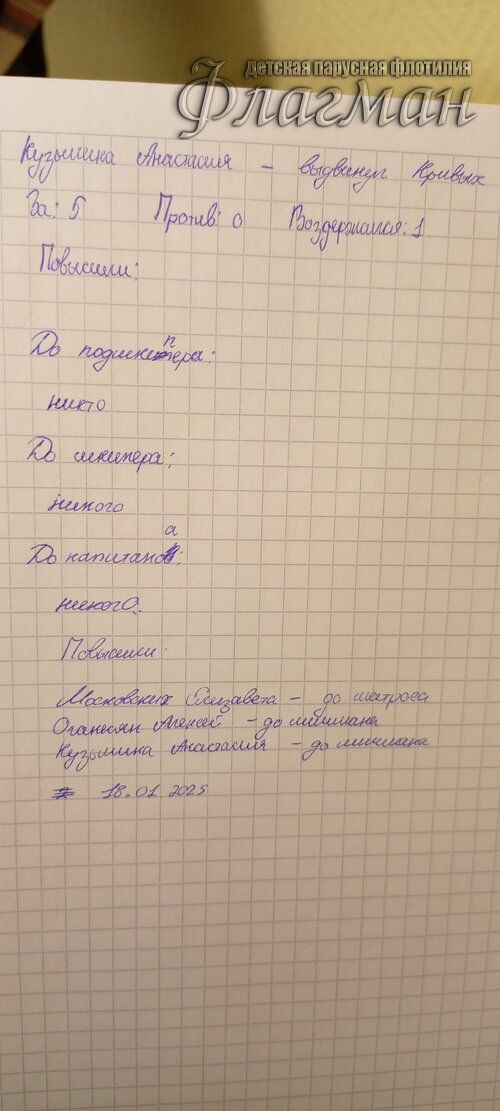 детская парусная флотилия
Флагман
Кузьмина Анастасия – выдвинул Кривых
За: 5 Против: 0 Воздержался: 1
Повысили:
До подшкипера:
никто
До шкипера:
никого
До капитана:
никого:
Повысили:
Московских Елизавета – до матроса
Оганесян Алексей – до мичмана
Кузьмина Анастасия – до мичмана
18.01.2025